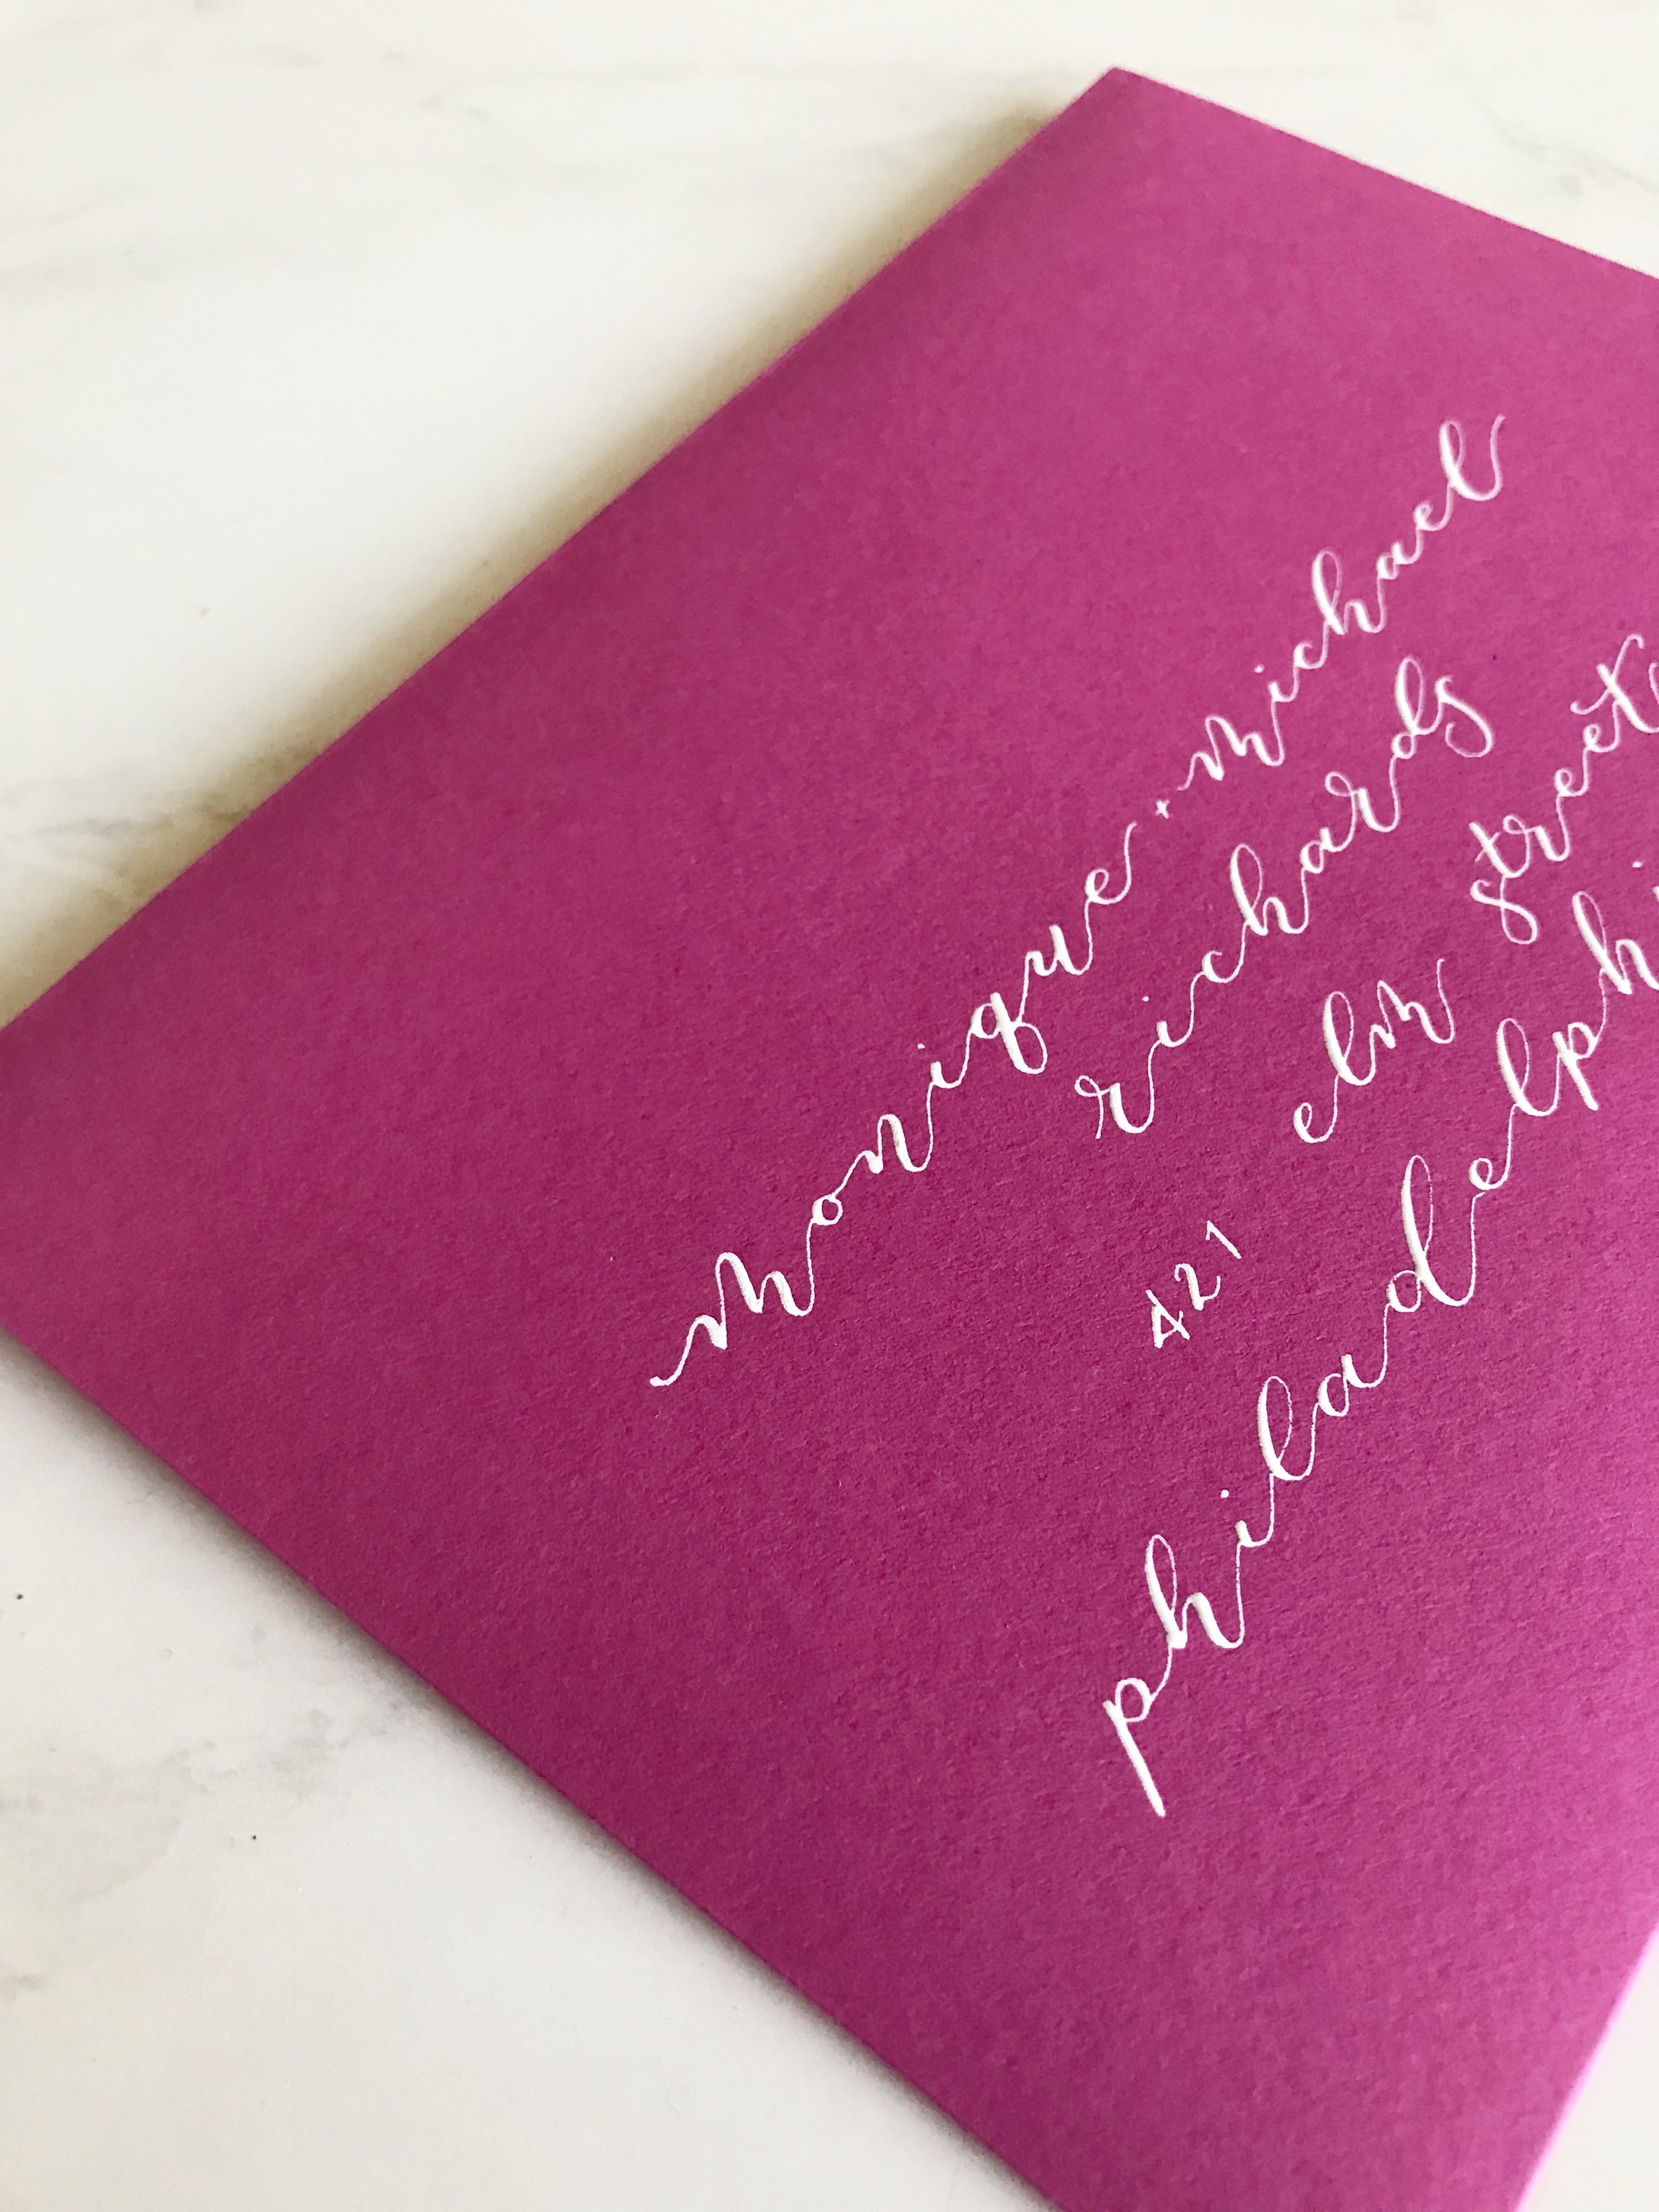 monique + michael
richards
421 elm street
philadelphi